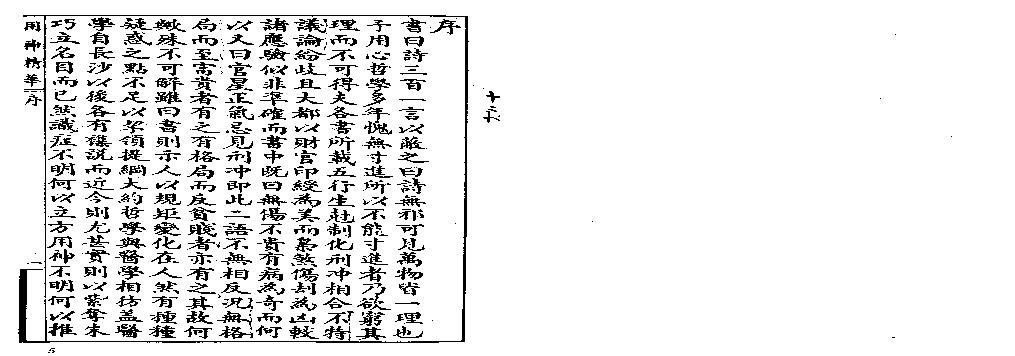 十六
序
書曰詩三百一言以蔽之曰詩無邪可見萬物皆一理也
予用心哲學多年愧無寸進所以不能寸進者乃欲窮其
理而不可得夫各書所載五行生尅制化刑冲相合不特
議論紛歧且大都以財官印綬為美而梟煞傷刦為凶較
諸應驗似非準確而書中既曰無傷不貴有病為奇而何
以又曰官星正氣忌見刑冲即此二語不無相反況無格
局而至富貴者有之有格局而反貧賤者亦有之其故何
歟殊不可解雖曰書則示人以規矩變化在人然有種種
疑惑之點不足以挈領提綱大約哲學與醫學相彷蓋醫
學自長沙以後各有雜說而近今則尤甚實則以紫奪朱
巧立名目而已然識症不明何以立方用神不明何以推
用神精華 序
一
5